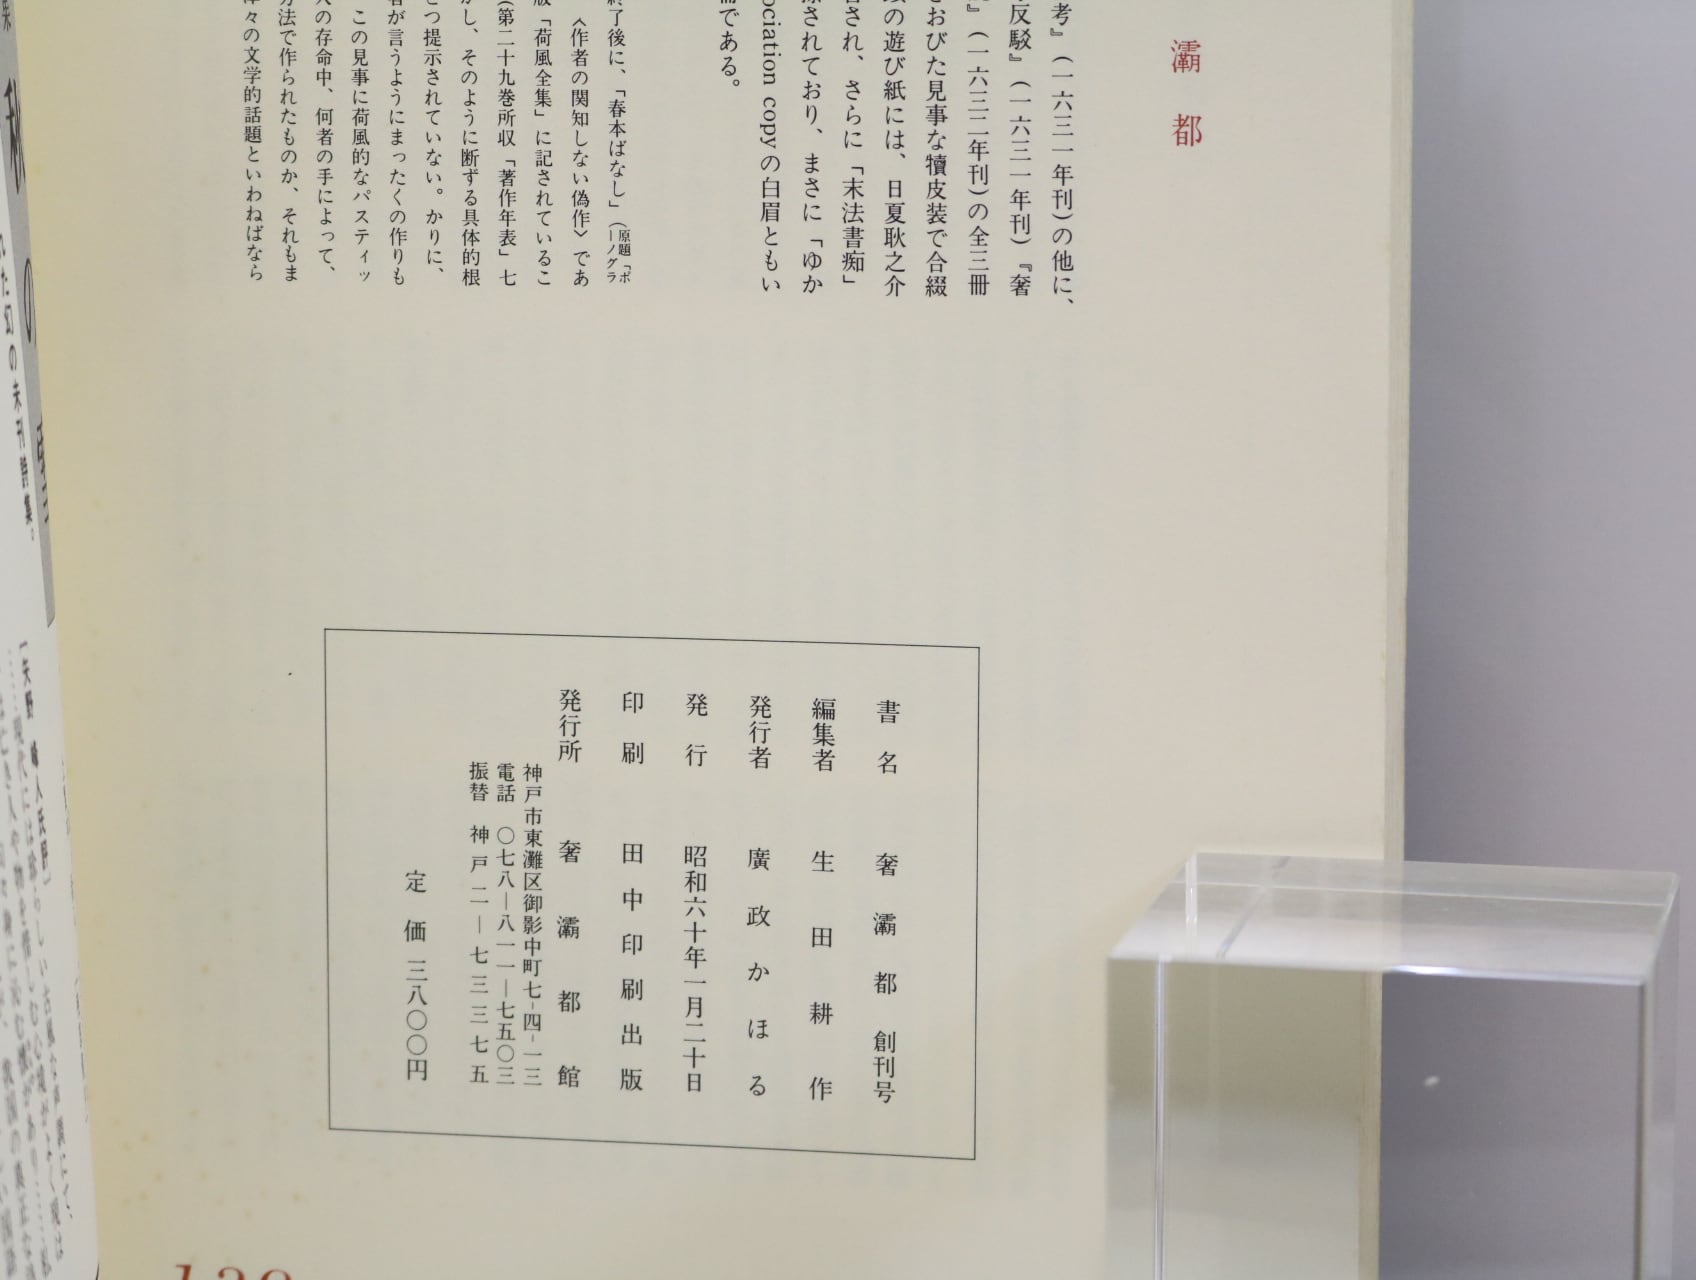 灞都
考』(一六三一年刊)の他に、
反駁』(一六三一年刊)『奢
』(一六三二年刊)の全三冊
をおびた見事な犢皮装で合綴
の遊び紙には、日夏耿之介
され、さらに「末法書痴」
されており、まさに「ゆか
ociation copyの白眉ともい
である。
終了後に、「春本ばなし」(原題「ポ
ーノグラ
〈作者の関知しない偽作〉であ
版「荷風全集」に記されているこ
(第二十九巻所収「著作年表」七
かし、そのように断ずる具体的根
とつ提示されていない。かりに、
者が言うようにまったくの作りも
この見事に荷風的なパスティッ
人の存命中、何者の手によって、
方法で作られたものか、それもま
津々の文学的話題といわねばなら
書名 奢灞都 創刊号
編集者 生田耕作
発行者 廣政かほる
発行 昭和六十年一月二十日
印刷 田中印刷出版
発行所 奢灞都館
神戸市東灘区御影中町七-四-一三
電話 〇七八―八一一―七五〇三
振替 神戸二―七三三七五
定価 三八〇〇円
秋の
れた幻の未刊詩集。